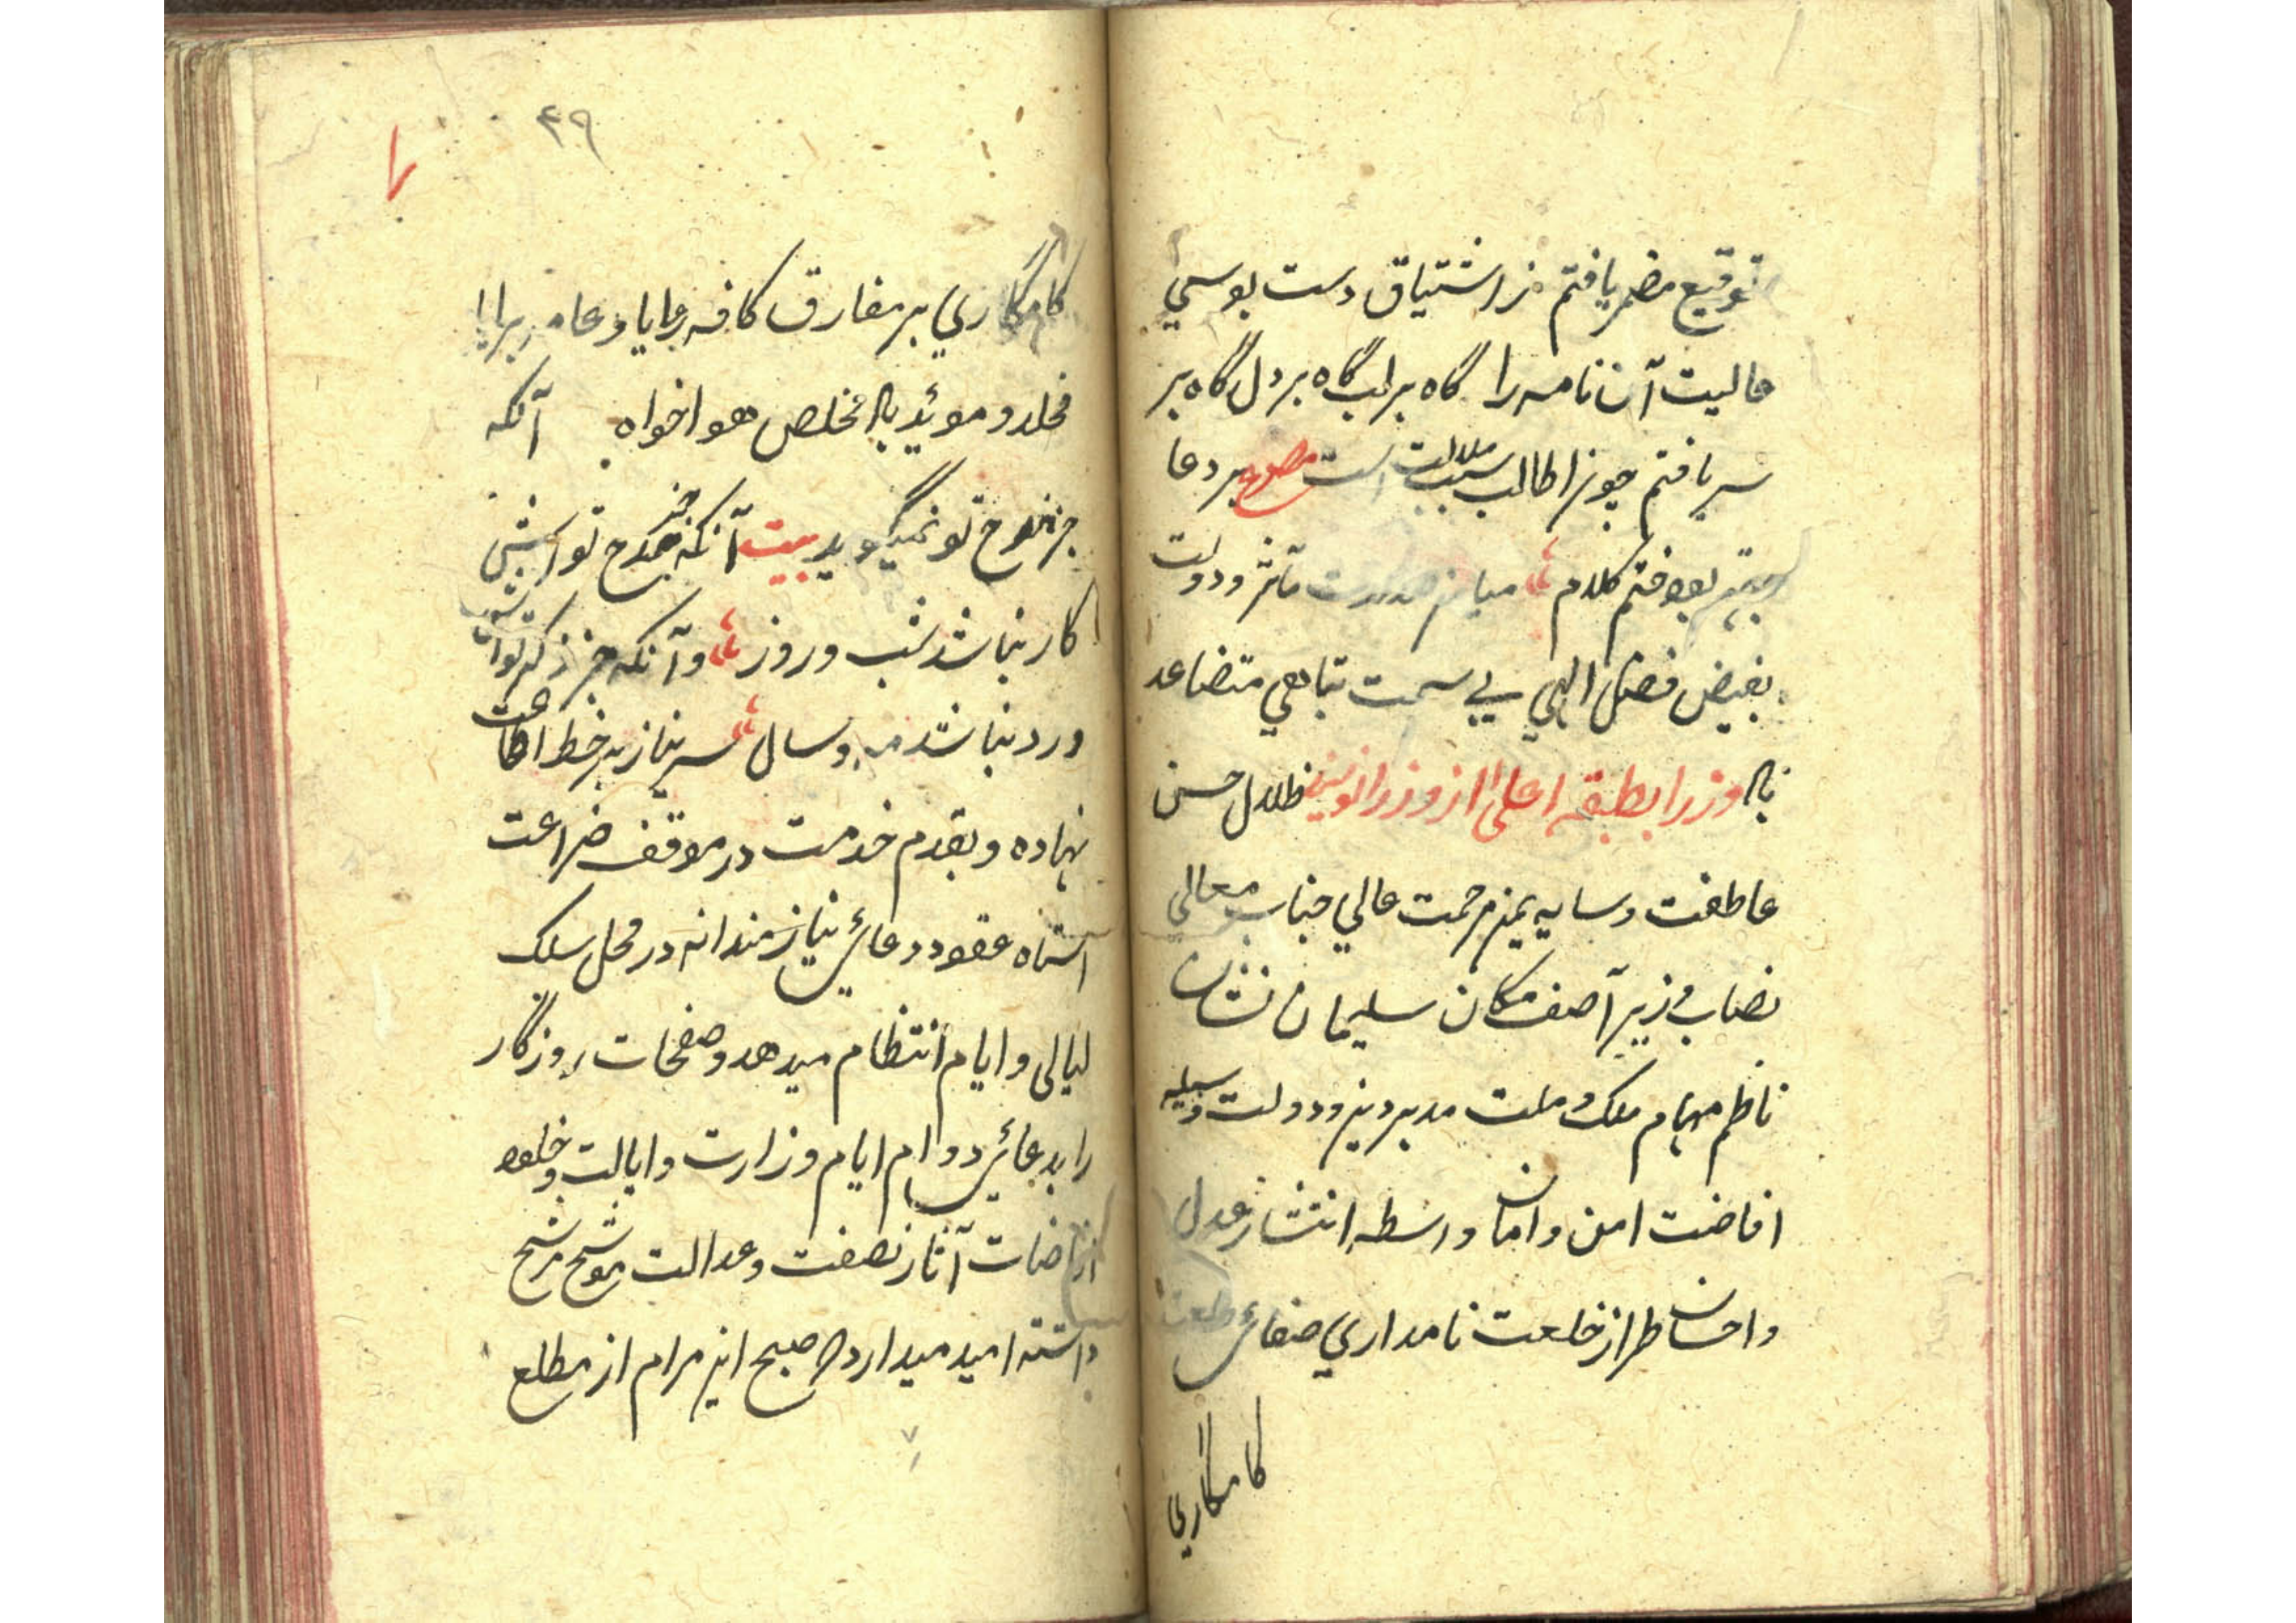 توقیع مضمر یافتم ز اشتیاق دست بوسی
عالیت آن نامه را گاه بر لب گاه بر دل گاه بر
سر یافتم چون اطالب سبب ملالت است مصرع بر دعا
کلام میامن دولت
بفیض فضل الهی بی سمت تناهی متضاعد
باد وزرا بطبقه اعلی از وزرا نویسند ظلال حسن
عاطفت و سایه یمن مرحمت عالی جناب معالی
نصاب وزیر آصف مکان سلیمان نشان
ناظم مهام ملک و ملت مدبر دین و دولت وسیله
افاضت امن و امان واسطه انتشار عدل
و احسان طراز خلعت نامداری صفای طلعت
کامکاری
۴۹
کامکاری بر مفارق کافه رعایا و عامه برایا
مخلد و موئد باد مخلص هواخواه آنکه
جز مدح تو نمیگوید بیت آنکه جز مدح تواش
کار نباشد شب و روز و آنکه جز ذکر تواش
ورد نباشد مه و سال سر نیاز بر خط اطاعت
نهاده و بقدم خدمت در موقف ضراعت
استاه عقود دعای نیازمندانه در محل سلک
لیالی و ایام انتظام میدهد و صفحات روزگار
را بدعای دوام ایام وزارت و ایالت و خلود
آثار نصفت و عدالت موشح مرشح
داشته امید میدارد که صبح این مرام از مطلع